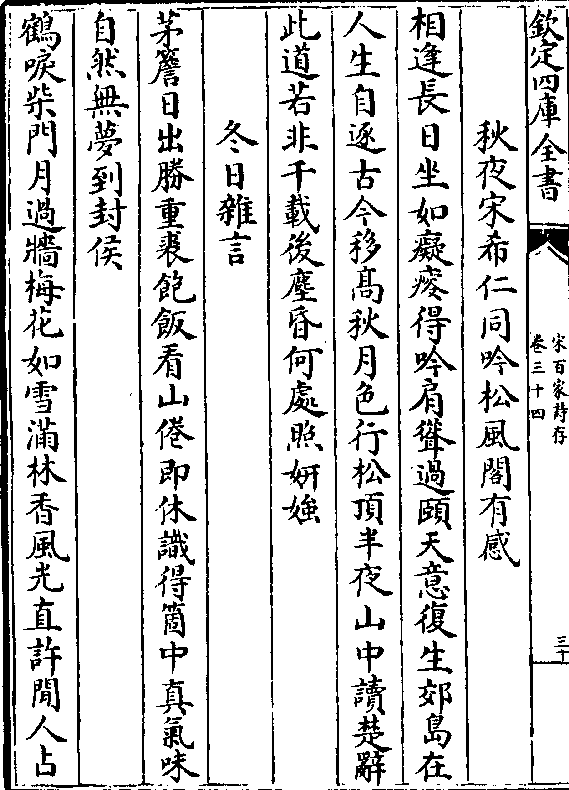 欽定四庫全書
宋百家詩存
卷三十四
三十
秋夜宋希仁同吟松風閣有感
相逢長日坐如癡瘦得吟肩聳過頤天意復生郊島在
人生自逐古今移高秋月色行松頂半夜山中讀楚辭
此道若非千載後塵昏何處照妍媸
冬日雜言
茅簷日出勝重裘飽飯看山倦即休識得箇中真氣味
自然無夢到封侯
鶴唳柴門月過牆梅花如雪滿林香風光直許閒人占